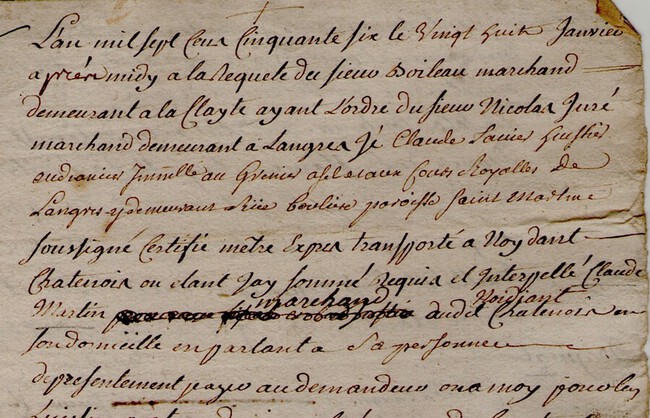 L'an mil sept Cens Cinquante six le Vingt huit Janvier
apres midy a la Requete du sieur Boileau marchand
demeurant a la Clayte ayant L'ordre du sieur Nicolas Juré
marchand demeurant a Langres Jé Claude Huissier
audiancier au Grenier a sel et aux cours Royalles de
Langres y demeurant Rüe paroisse Saint Martin
soussigné Certifié metre Expres transporté a Noydant
Chatenois ou étant Jay sommé Requis et Interpellé Claude
Martin marchand audit Chatenois en
son domicille en parlant a Sa personne
de presentement payer au demandeur ou a moy